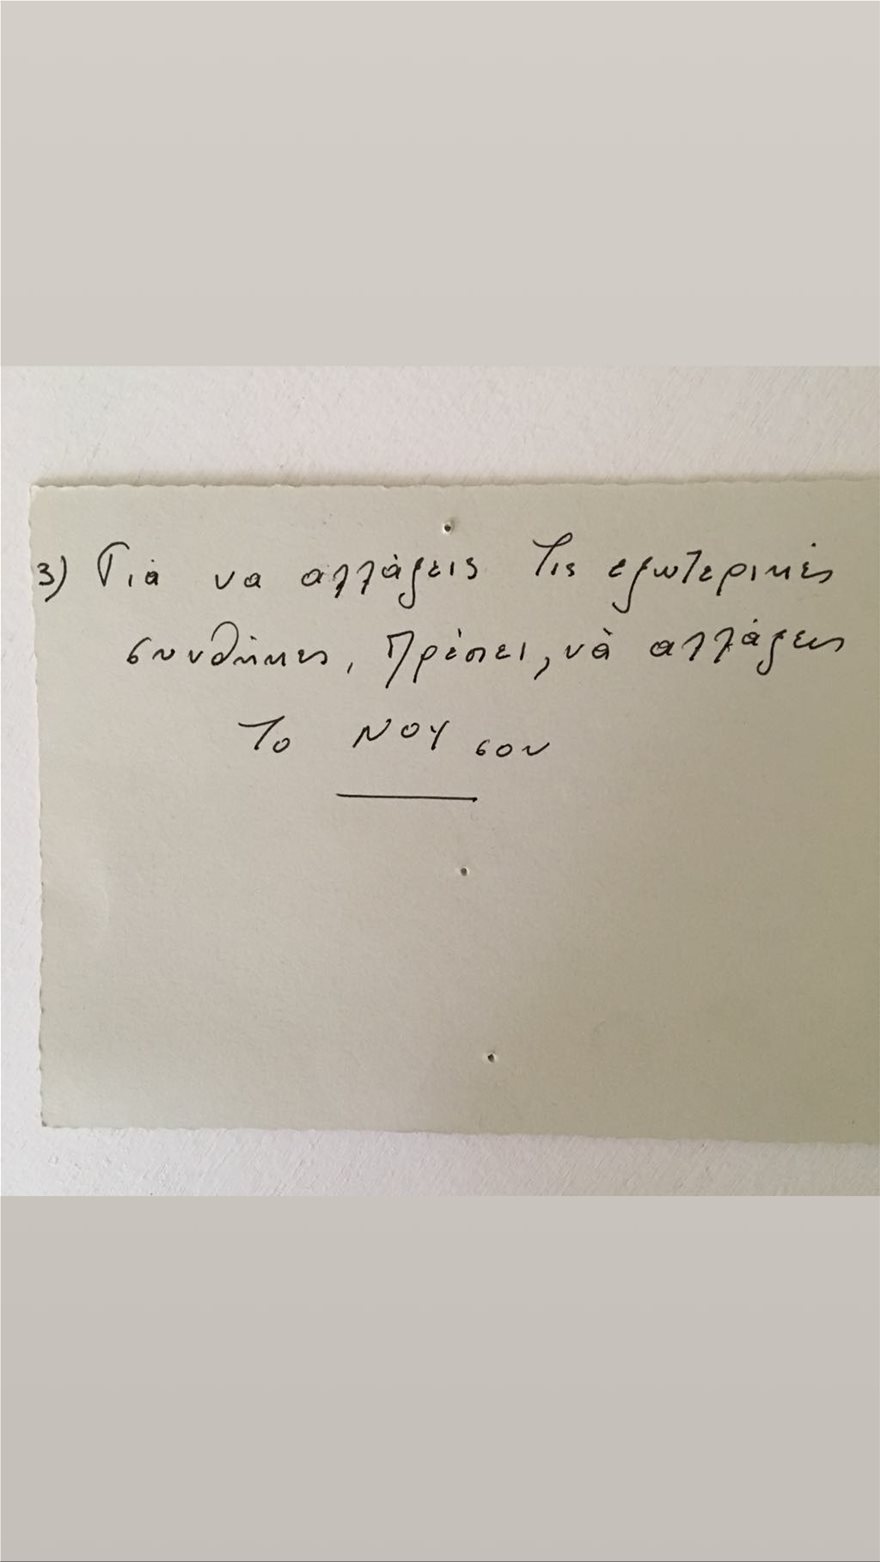 3) Γιά να αλλάξεις τις εξωτερικές
συνθήκες, πρέπει, νά αλλάξεις
το ΝΟΥ σου